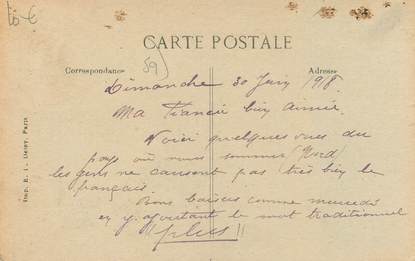 10 €
59
CARTE POSTALE
Correspondance
Adresse
Dimanche 30 Juin 1918.
Ma Fiancée bien aimée.
Voici quelques vues du
pays où nous sommes (Nord)
les gens ne causent pas très bien le
français
Bons baisers comme mercredi
en y ajoutant le mot traditionnel
"plus"
Imp. R. Dessy, Paris